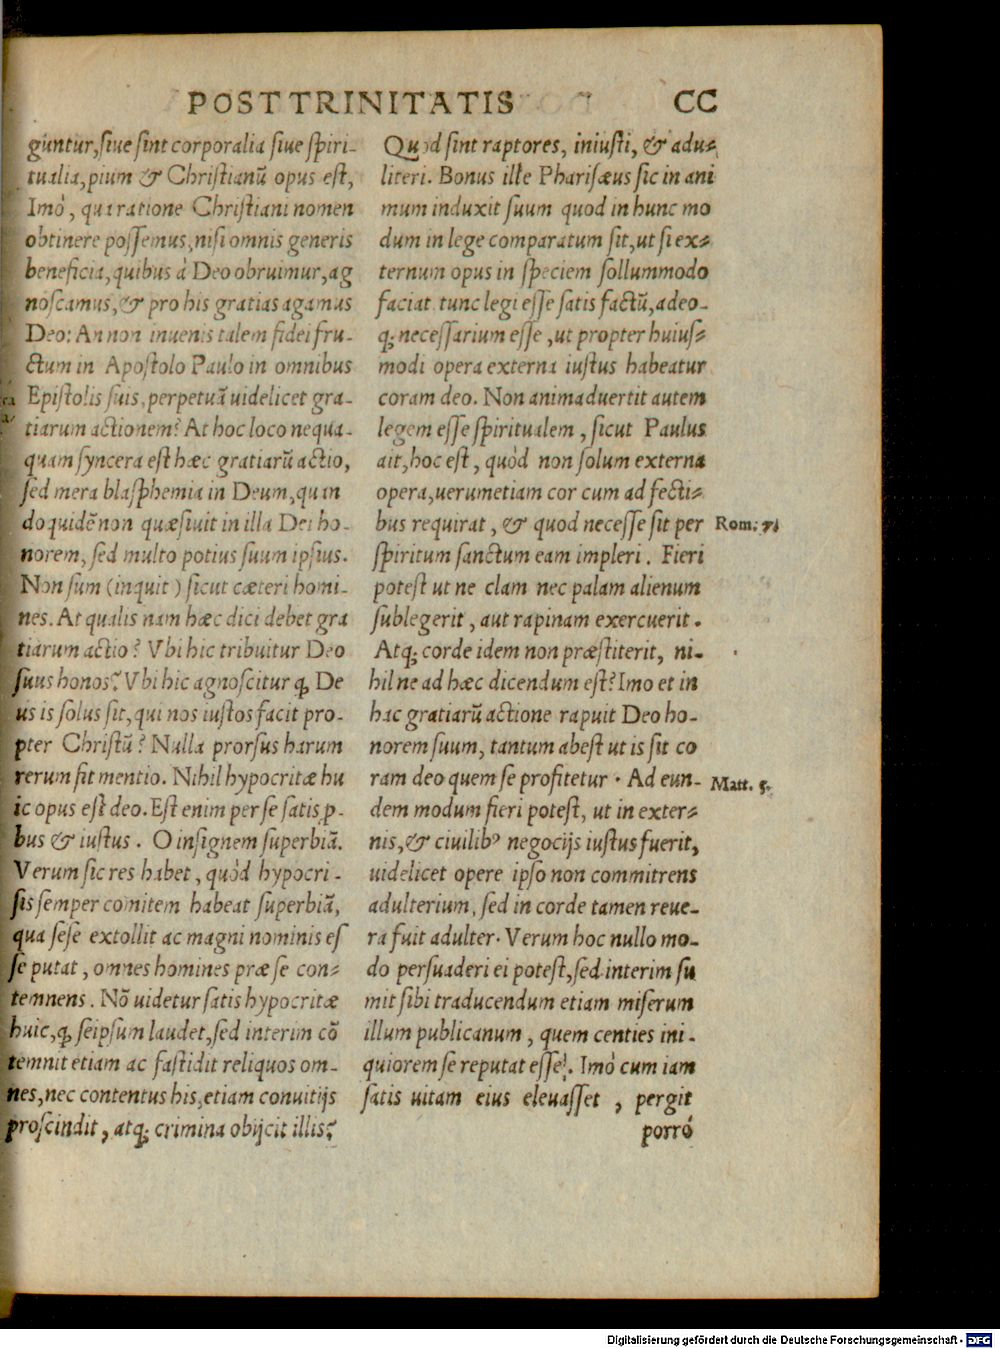 POST TRINITATIS CC
guntur, siue sint corporalia siue spiri-
tualia, pium & Christianū opus est,
Imò, qua ratione Christiani nomen
obtinere possemus, nisi omnis generis
beneficia, quibus à Deo obruimur, ag
noscamus, & pro his gratias agamus
Deo: An non inuenis talem fidei fru-
ctum in Apostolo Paulo in omnibus
Epistolis suis, perpetuā uidelicet gra-
tiarum actionem? At hoc loco nequa-
quam syncera est hæc gratiarū actio,
sed mera blasphemia in Deum, quan
do quidē non quæsiuit in illa Dei ho-
norem, sed multo potius suum ipsius.
Non sum (inquit) sicut cæteri homi-
nes. At qualis nam hæc dici debet gra
tiarum actio? Vbi hic tribuitur Deo
suus honos? Vbi hic agnoscitur ꝙ De
us is solus sit, qui nos iustos facit pro-
pter Christū? Nulla prorsus harum
rerum fit mentio. Nihil hypocritæ hu
ic opus est deo. Est enim per se satis ꝓ-
bus & iustus. O insignem superbiā.
Verum sic res habet, quòd hypocri-
sis semper comitem habeat superbiā,
qua sese extollit ac magni nominis es
se putat, omnes homines præ se con-
temnens. Nō uidetur satis hypocritæ
huic, ꝙ seipsum laudet, sed interim cō
temnit etiam ac fastidit reliquos om-
nes, nec contentus his, etiam conuitijs
proscindit, atq; crimina obijcit illis?
Quod sint raptores, iniusti, & adu-
literi. Bonus ille Pharisæus sic in ani
mum induxit suum quod in hunc mo
dum in lege comparatum sit, ut si ex-
ternum opus in speciem sollummodo
faciat tunc legi esse satis factū, adeo-
q; necessarium esse, ut propter huius-
modi opera externa iustus habeatur
coram deo. Non animaduertit autem
legem esse spiritualem, sicut Paulus
ait, hoc est, quòd non solum externa
opera, uerumetiam cor cum ad fecti-
bus requirat, & quod necesse sit per
spiritum sanctum eam impleri. Fieri
potest ut ne clam nec palam alienum
sublegerit, aut rapinam exercuerit.
Atq; corde idem non præstiterit, ni-
hil ne ad hæc dicendum est? Imo et in
hac gratiarū actione rapuit Deo ho-
norem suum, tantum abest ut is sit co
ram deo quem se profitetur. Ad eun-
dem modum fieri potest, ut in exter-
nis, & ciuilibꝰ negocijs iustus fuerit,
uidelicet opere ipso non committens
adulterium, sed in corde tamen reue-
ra fuit adulter. Verum hoc nullo mo-
do persuaderi ei potest, sed interim su
mit sibi traducendum etiam miserum
illum publicanum, quem centies ini-
quiorem se reputat esse. Imò cum iam
satis uitam eius eleuasset, pergit
porrò
Rom. 7
Matt. 5.
Digitalisierung gefördert durch die Deutsche Forschungsgemeinschaft - DFG